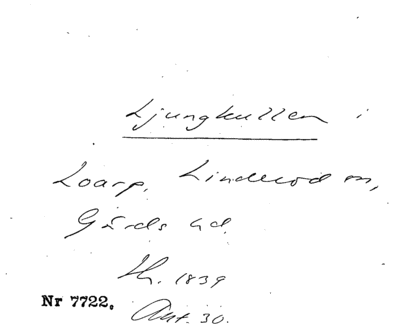 Ljungkullen i
Loarp, Linderöd sn,
Gärds hd.
Sk. 1839
Nr 7722.
Ant. 30.